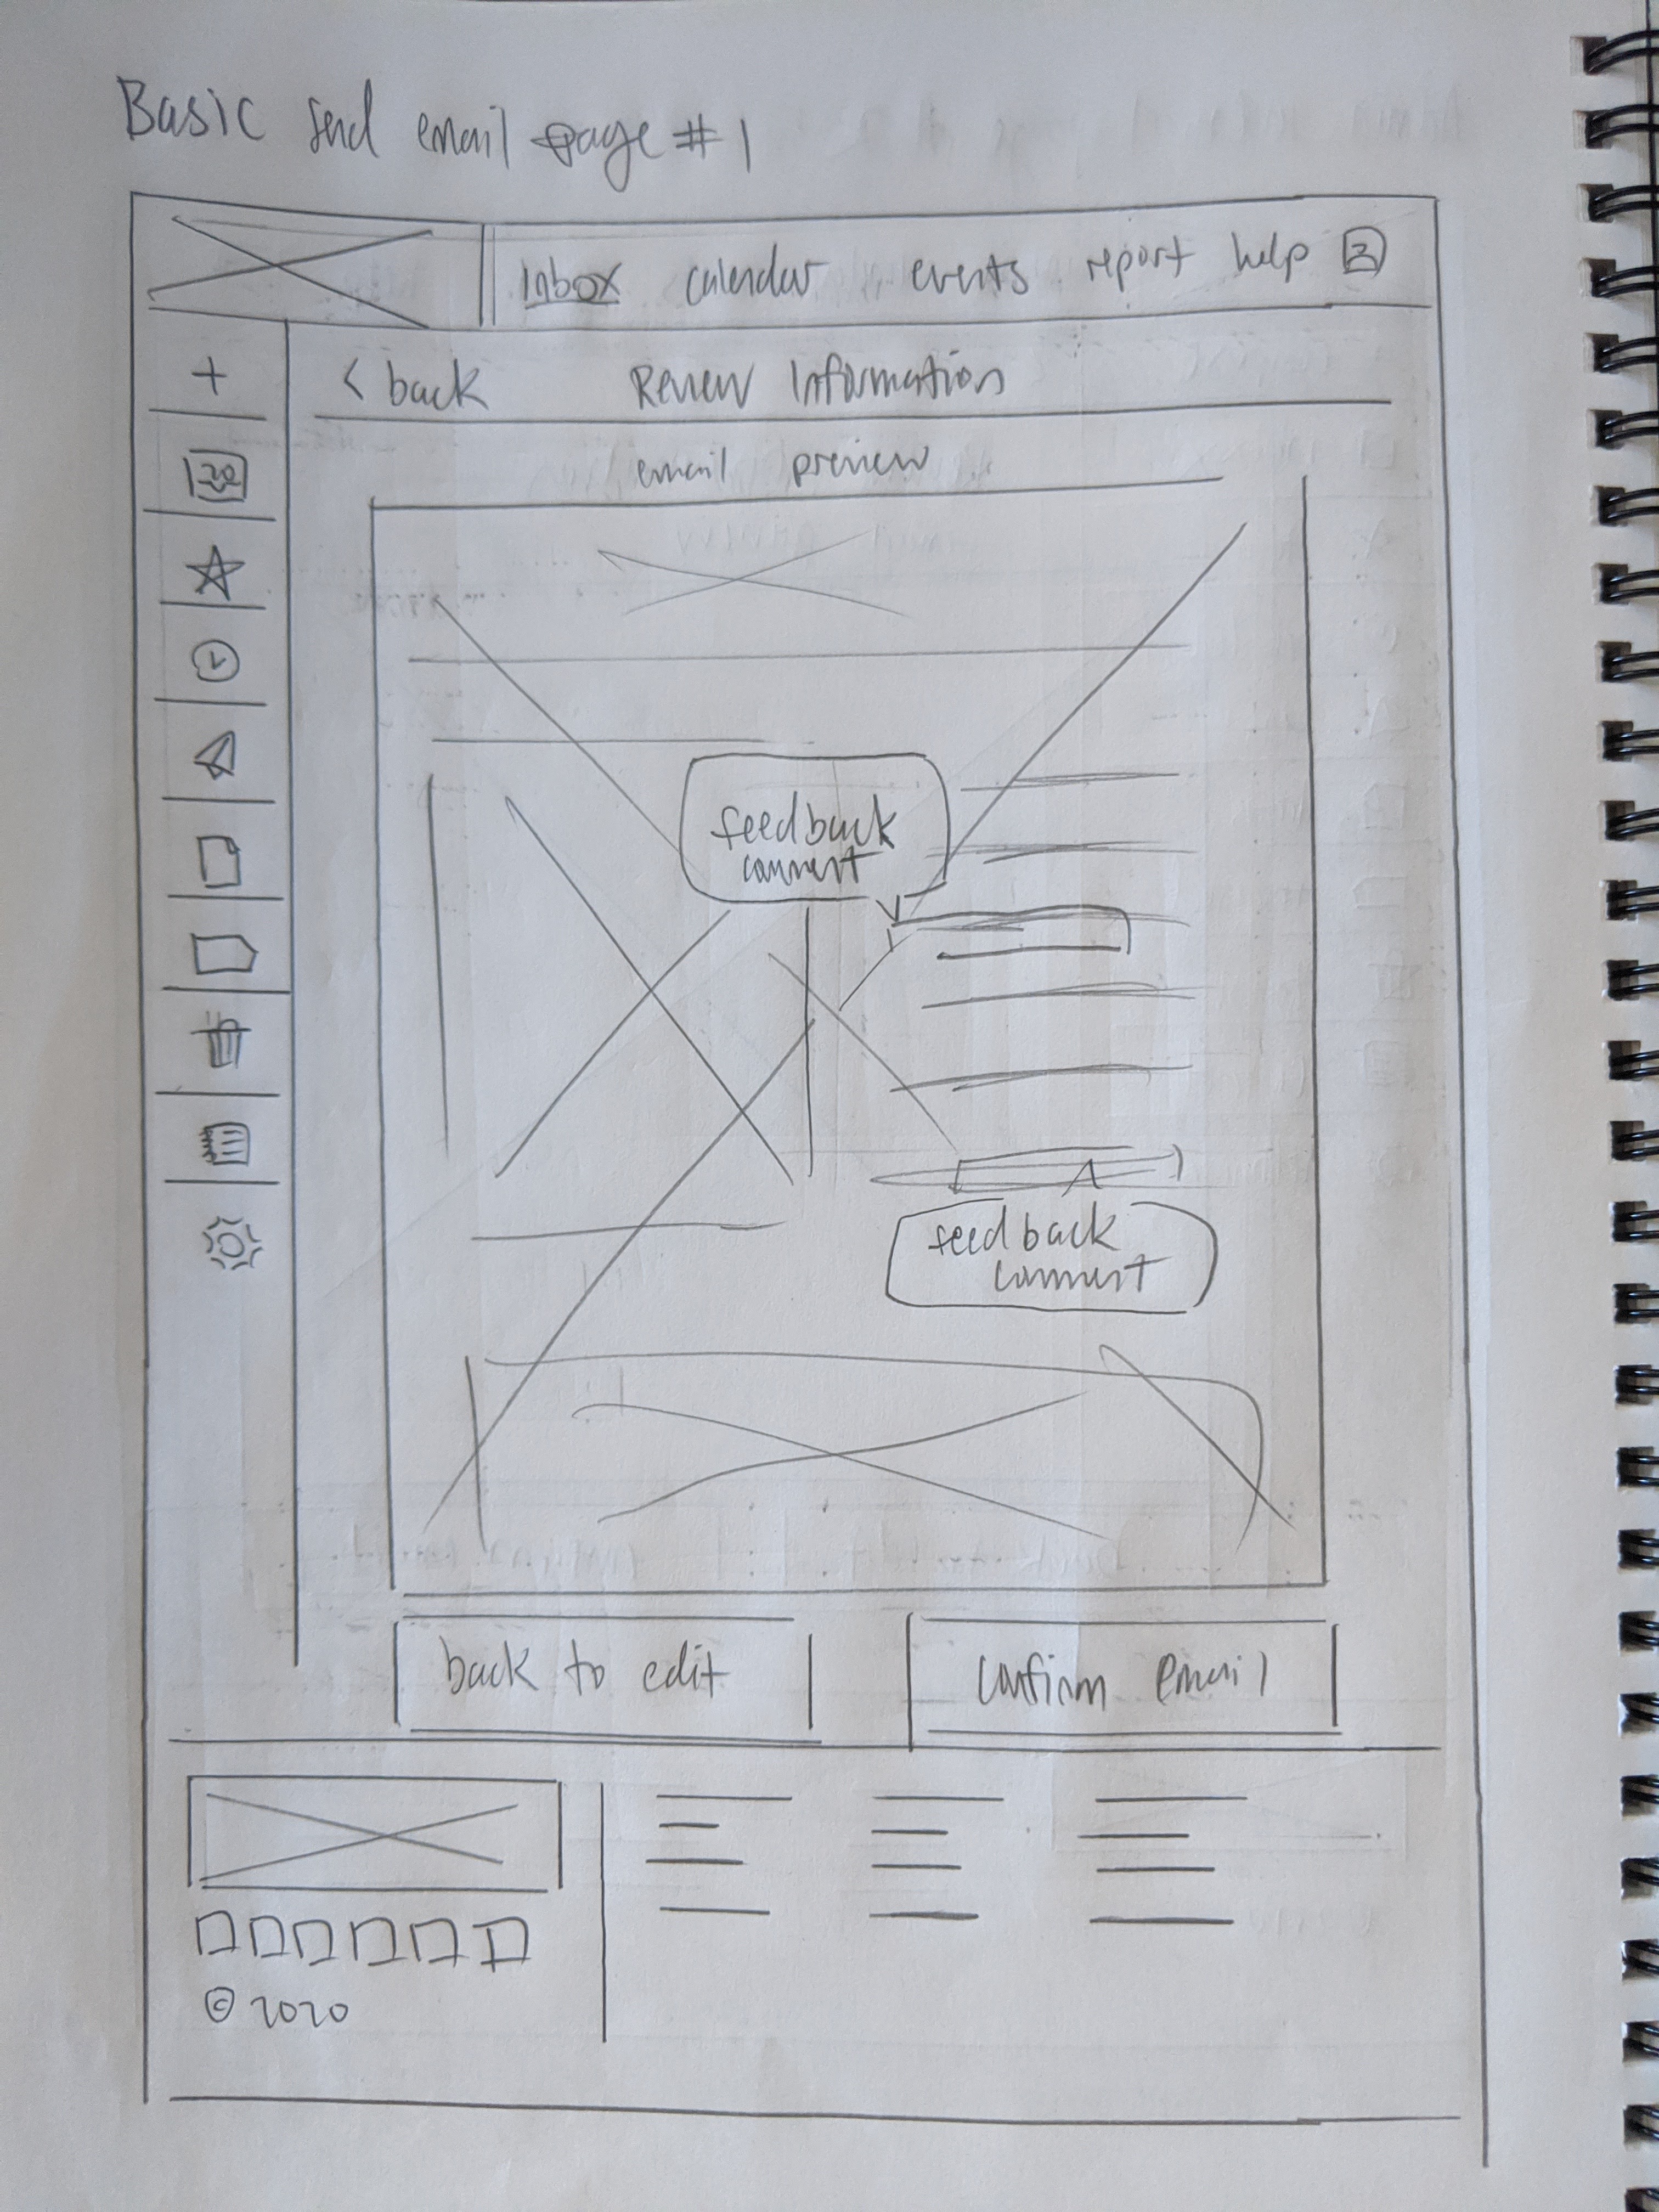 Basic send email page # 1
Inbox calendar events report help
+
< back Review Information
email preview
feedback
comment
feedback
comment
back to edit confirm email
© 2020